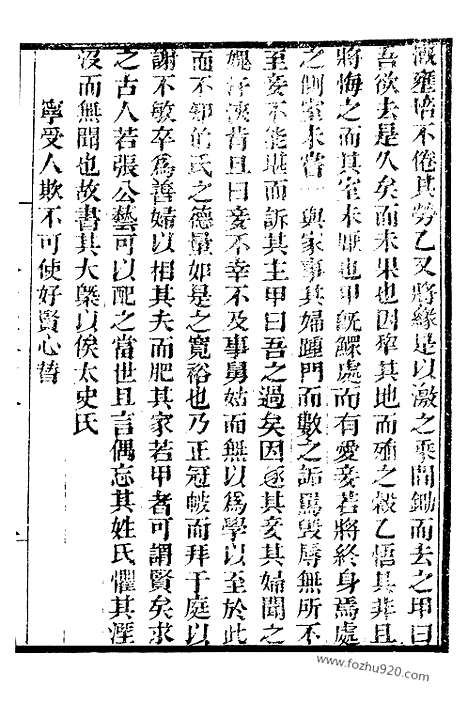 溉壅培不倦其勞乙又將緣是以激之乘間鋤而去之甲曰
吾欲去是久矣而未果也因犂其地而殖之穀乙悟其非且
將悔之而其室未厭也甲旣鰥處而有愛妾若將終身焉處
之側室未嘗一與家事其婦踵門而數之詬罵毀辱無所不
至妾不能堪而訴其主甲曰吾之過矣因逐其妾其婦聞之
愧汗浹背且曰妾不幸不及事舅姑而無以爲學以至於此
而不卹的氏之德量如是之寬裕也乃正冠帔而拜于庭以
謝不敏卒爲善婦以相其夫而肥其家若甲者可謂賢矣求
之古人若張公藝可以配之當世且言偶忘其姓氏懼其湮
沒而無聞也故書其大槩以俟太史氏
寧受人欺不可使好賢心替
www.fozhu920.com